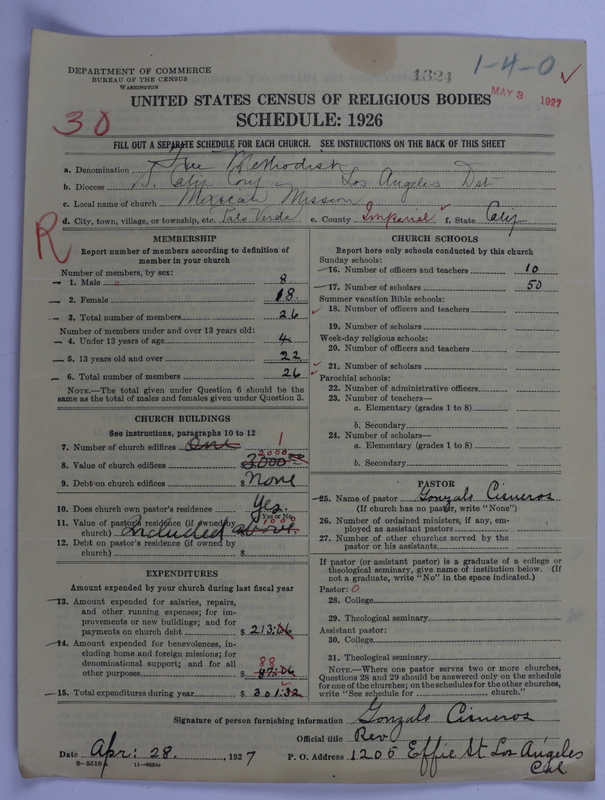 DEPARTMENT OF COMMERCE
BUREAU OF THE CENSUS
WASHINGTON
1324
1-4-0 ✓
MAY 3 1927
UNITED STATES CENSUS OF RELIGIOUS BODIES
30
SCHEDULE: 1926
FILL OUT A SEPARATE SCHEDULE FOR EACH CHURCH. SEE INSTRUCTIONS ON THE BACK OF THIS SHEET
a. Denomination Free Methodist
b. Diocese S. Calif Conf Los Angeles Dst
c. Local name of church Mexican Mission
d. City, town, village, or township, etc. Palo Verde e. County Imperial f. State Calif
R
MEMBERSHIP
Report number of members according to definition of
member in your church
Number of members, by sex:
1. Male 8
2. Female 18
3. Total number of members 26
Number of members under and over 13 years old:
4. Under 13 years of age 4
5. 13 years old and over 22
6. Total number of members 26
NOTE.—The total given under Question 6 should be the
same as the total of males and females given under Question 3.
CHURCH BUILDINGS
See instructions, paragraphs 10 to 12
7. Number of church edifices One 1
8. Value of church edifices $ 3000.00 2000
9. Debt on church edifices $ None
10. Does church own pastor's residence? Yes.
(Yes or No)
11. Value of pastor's residence (if owned by
church) Included above. 1000
12. Debt on pastor's residence (if owned by
church) $
EXPENDITURES
Amount expended by your church during last fiscal year
13. Amount expended for salaries, repairs,
and other running expenses; for im-
provements or new buildings; and for
payments on church debt $ 213.06
14. Amount expended for benevolences, in-
cluding home and foreign missions; for
denominational support; and for all
other purposes $ 88
15. Total expenditures during year $ 301.32
CHURCH SCHOOLS
Report here only schools conducted by this church
Sunday schools:
16. Number of officers and teachers 10
17. Number of scholars 50
Summer vacation Bible schools:
18. Number of officers and teachers
19. Number of scholars
Week-day religious schools:
20. Number of officers and teachers
21. Number of scholars
Parochial schools:
22. Number of administrative officers
23. Number of teachers—
a. Elementary (grades 1 to 8)
b. Secondary
24. Number of scholars—
a. Elementary (grades 1 to 8)
b. Secondary
PASTOR
25. Name of pastor Gonzals Cisneros
(If church has no pastor, write "None")
26. Number of ordained ministers, if any, em-
ployed as assistant pastors
27. Number of other churches served by the
pastor or his assistants
If pastor (or assistant pastor) is a graduate of a college or
theological seminary, give name of institution below. (If
not a graduate, write "No" in the space indicated.)
Pastor: 0
28. College
29. Theological seminary
Assistant pastor:
30. College
31. Theological seminary
NOTE.—Where one pastor serves two or more churches,
Questions 28 and 29 should be answered only on the schedule
for one of the churches; on the schedules for the other churches,
write "See schedule for church."
Signature of person furnishing information Gonzals Cisneros
Official title Rev
Date Apr: 28, 1927 P. O. Address 1206 Effie St Los Angeles
Cal
8-5518a